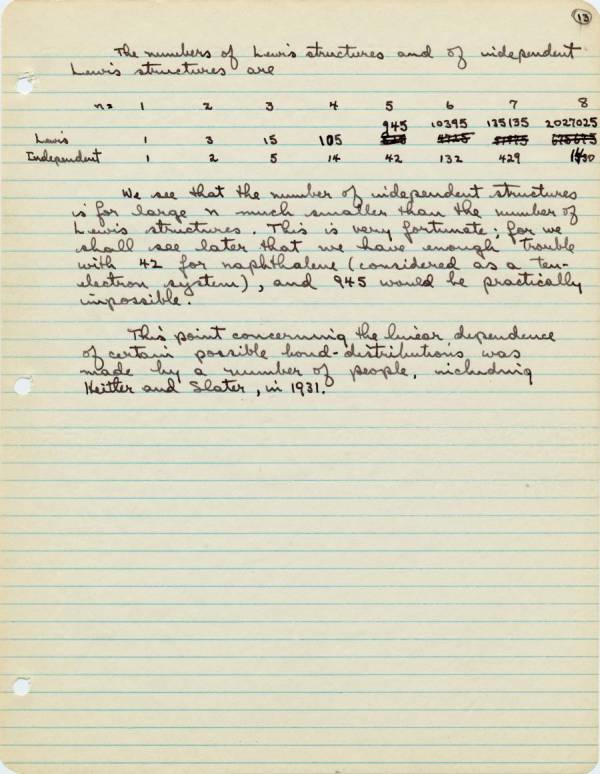 13
The numbers of Lewis structures and of independent
Lewis structures are
n= 1 2 3 4 5 6 7 8
945 10395 135135 2027025
Lewis 1 3 15 105
Independent 1 2 5 14 42 132 429 1430
We see that the number of independent structures
is for large n much smaller than the number of
Lewis structures. This is very fortunate; for we
shall see later that we have enough trouble
with 42 for naphthalene (considered as a ten-
electron system), and 945 would be practically
impossible.
This point concerning the linear dependence
of certain possible bond-distributions was
made by a number of people, including
Heitler and Slater, in 1931.